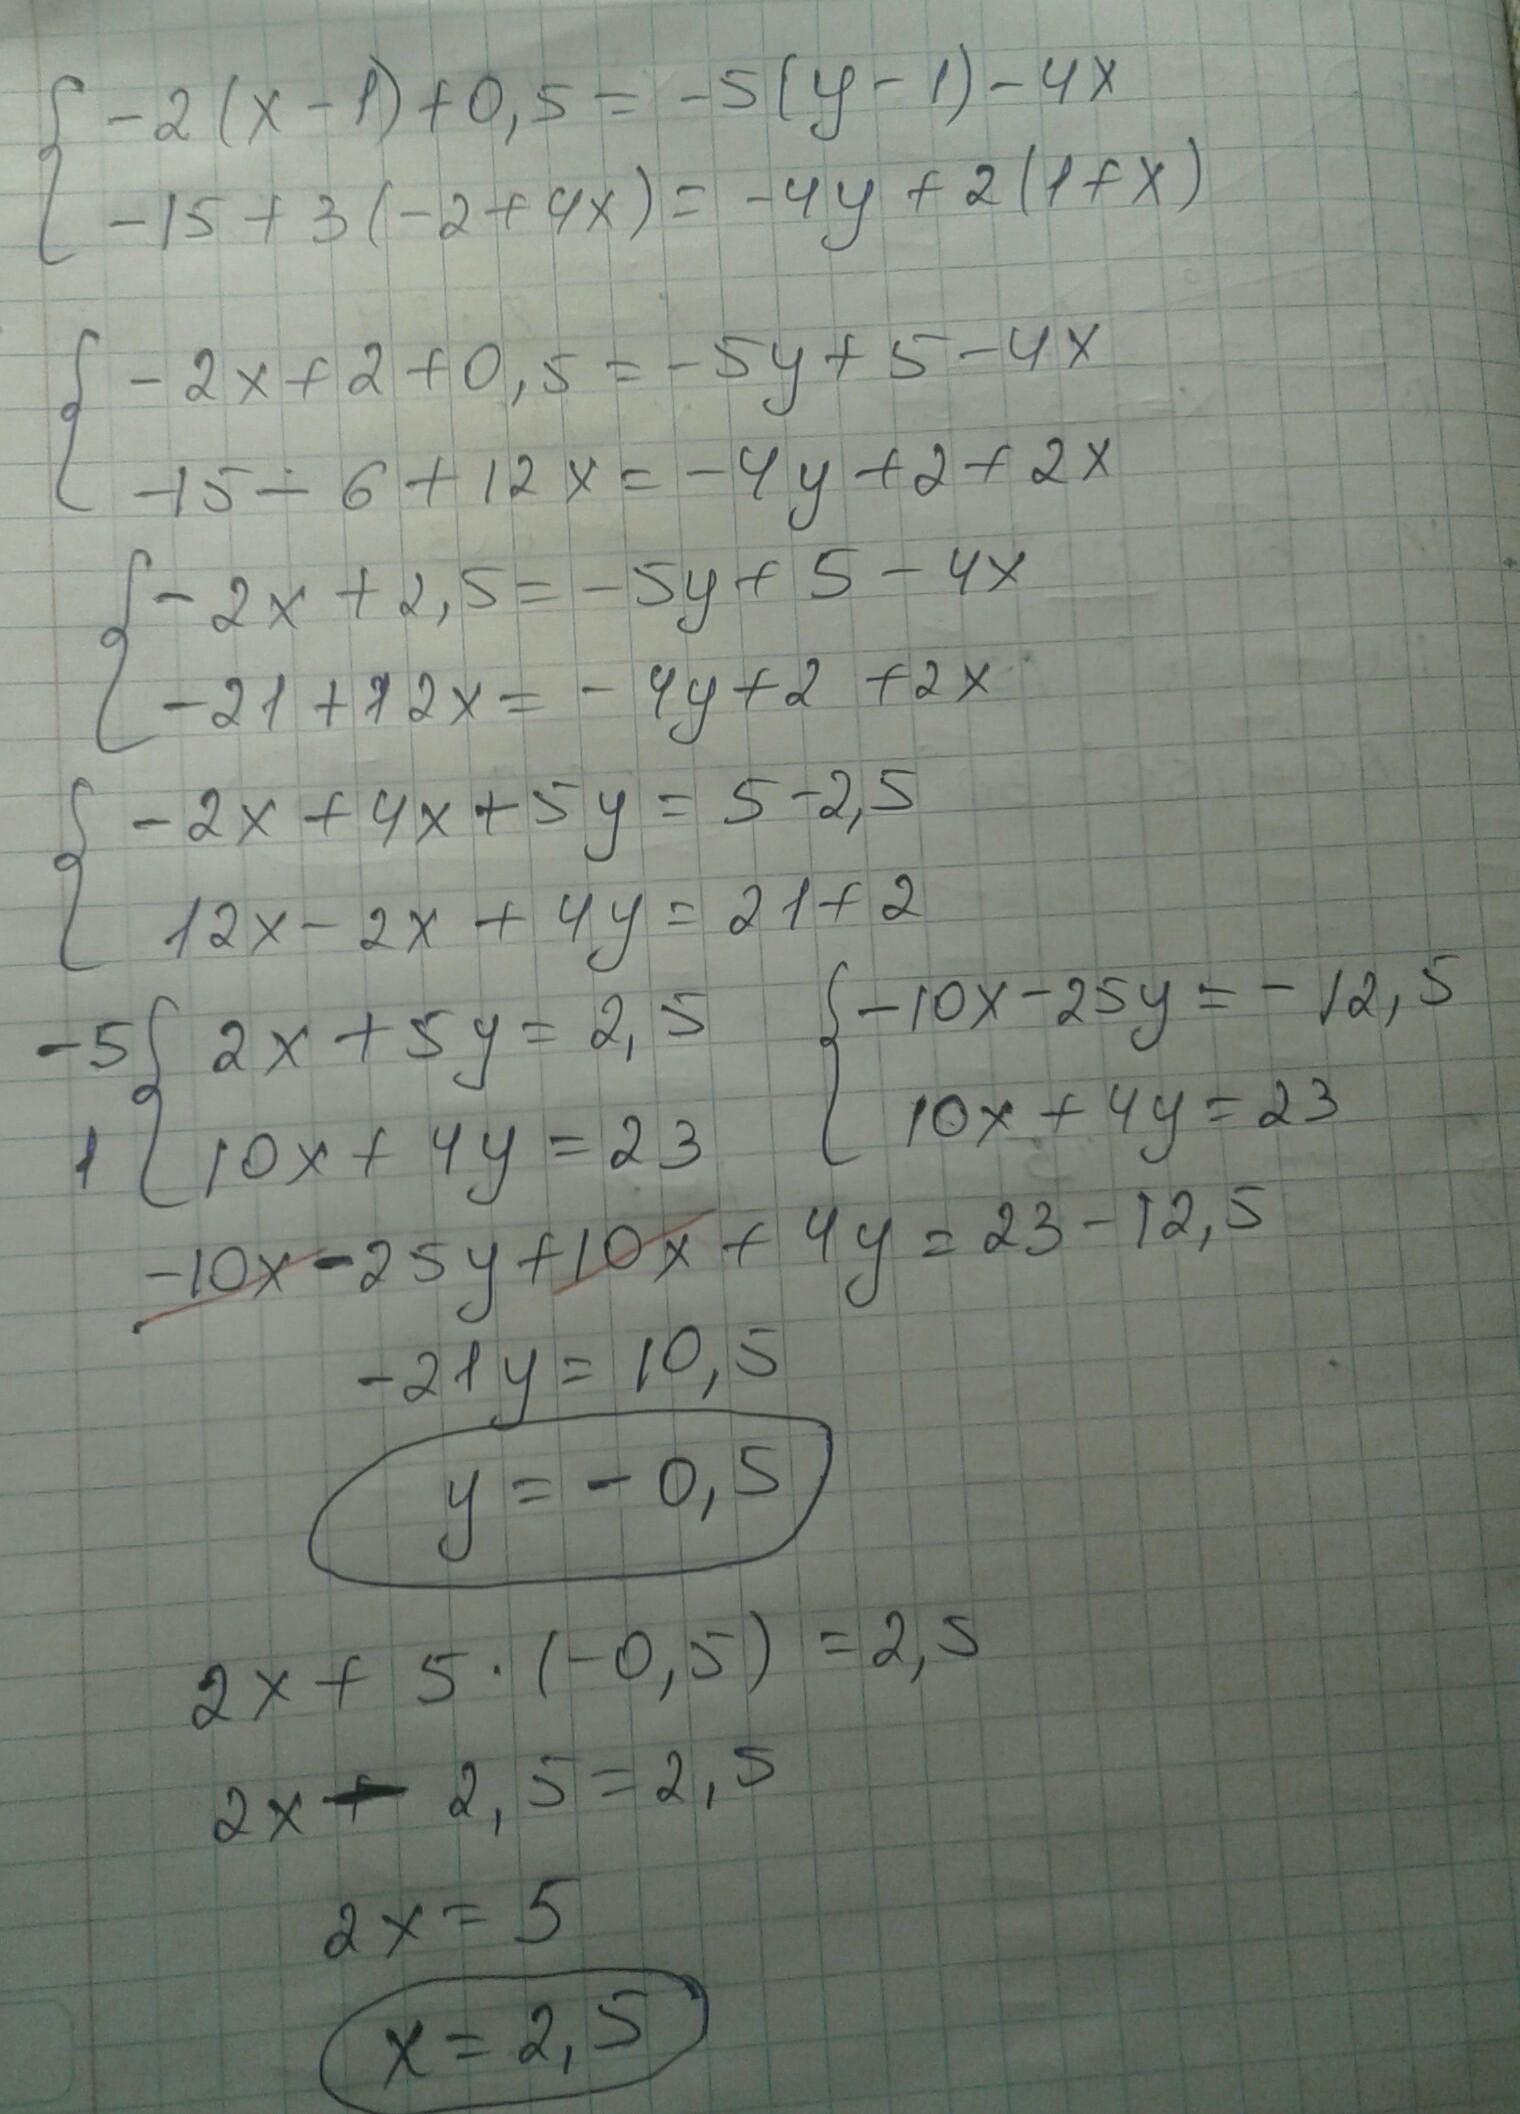 -2(x-1)+0,5=-5(y-1)-4x
-15+3(-2+4x)=-4y+2(1+x)
-2x+2+0,5=-5y+5-4x
-15-6+12x=-4y+2+2x
-2x+2,5=-5y+5-4x
-21+12x=-4y+2+2x
-2x+4x+5y=5-2,5
12x-2x+4y=21+2
-5 { 2x+5y=2,5
1 { 10x+4y=23
{ -10x-25y=-12,5
10x+4y=23
-10x-25y+10x+4y=23-12,5
-21y=10,5
y=-0,5
2x+5·(-0,5)=2,5
2x-2,5=2,5
2x=5
x=2,5